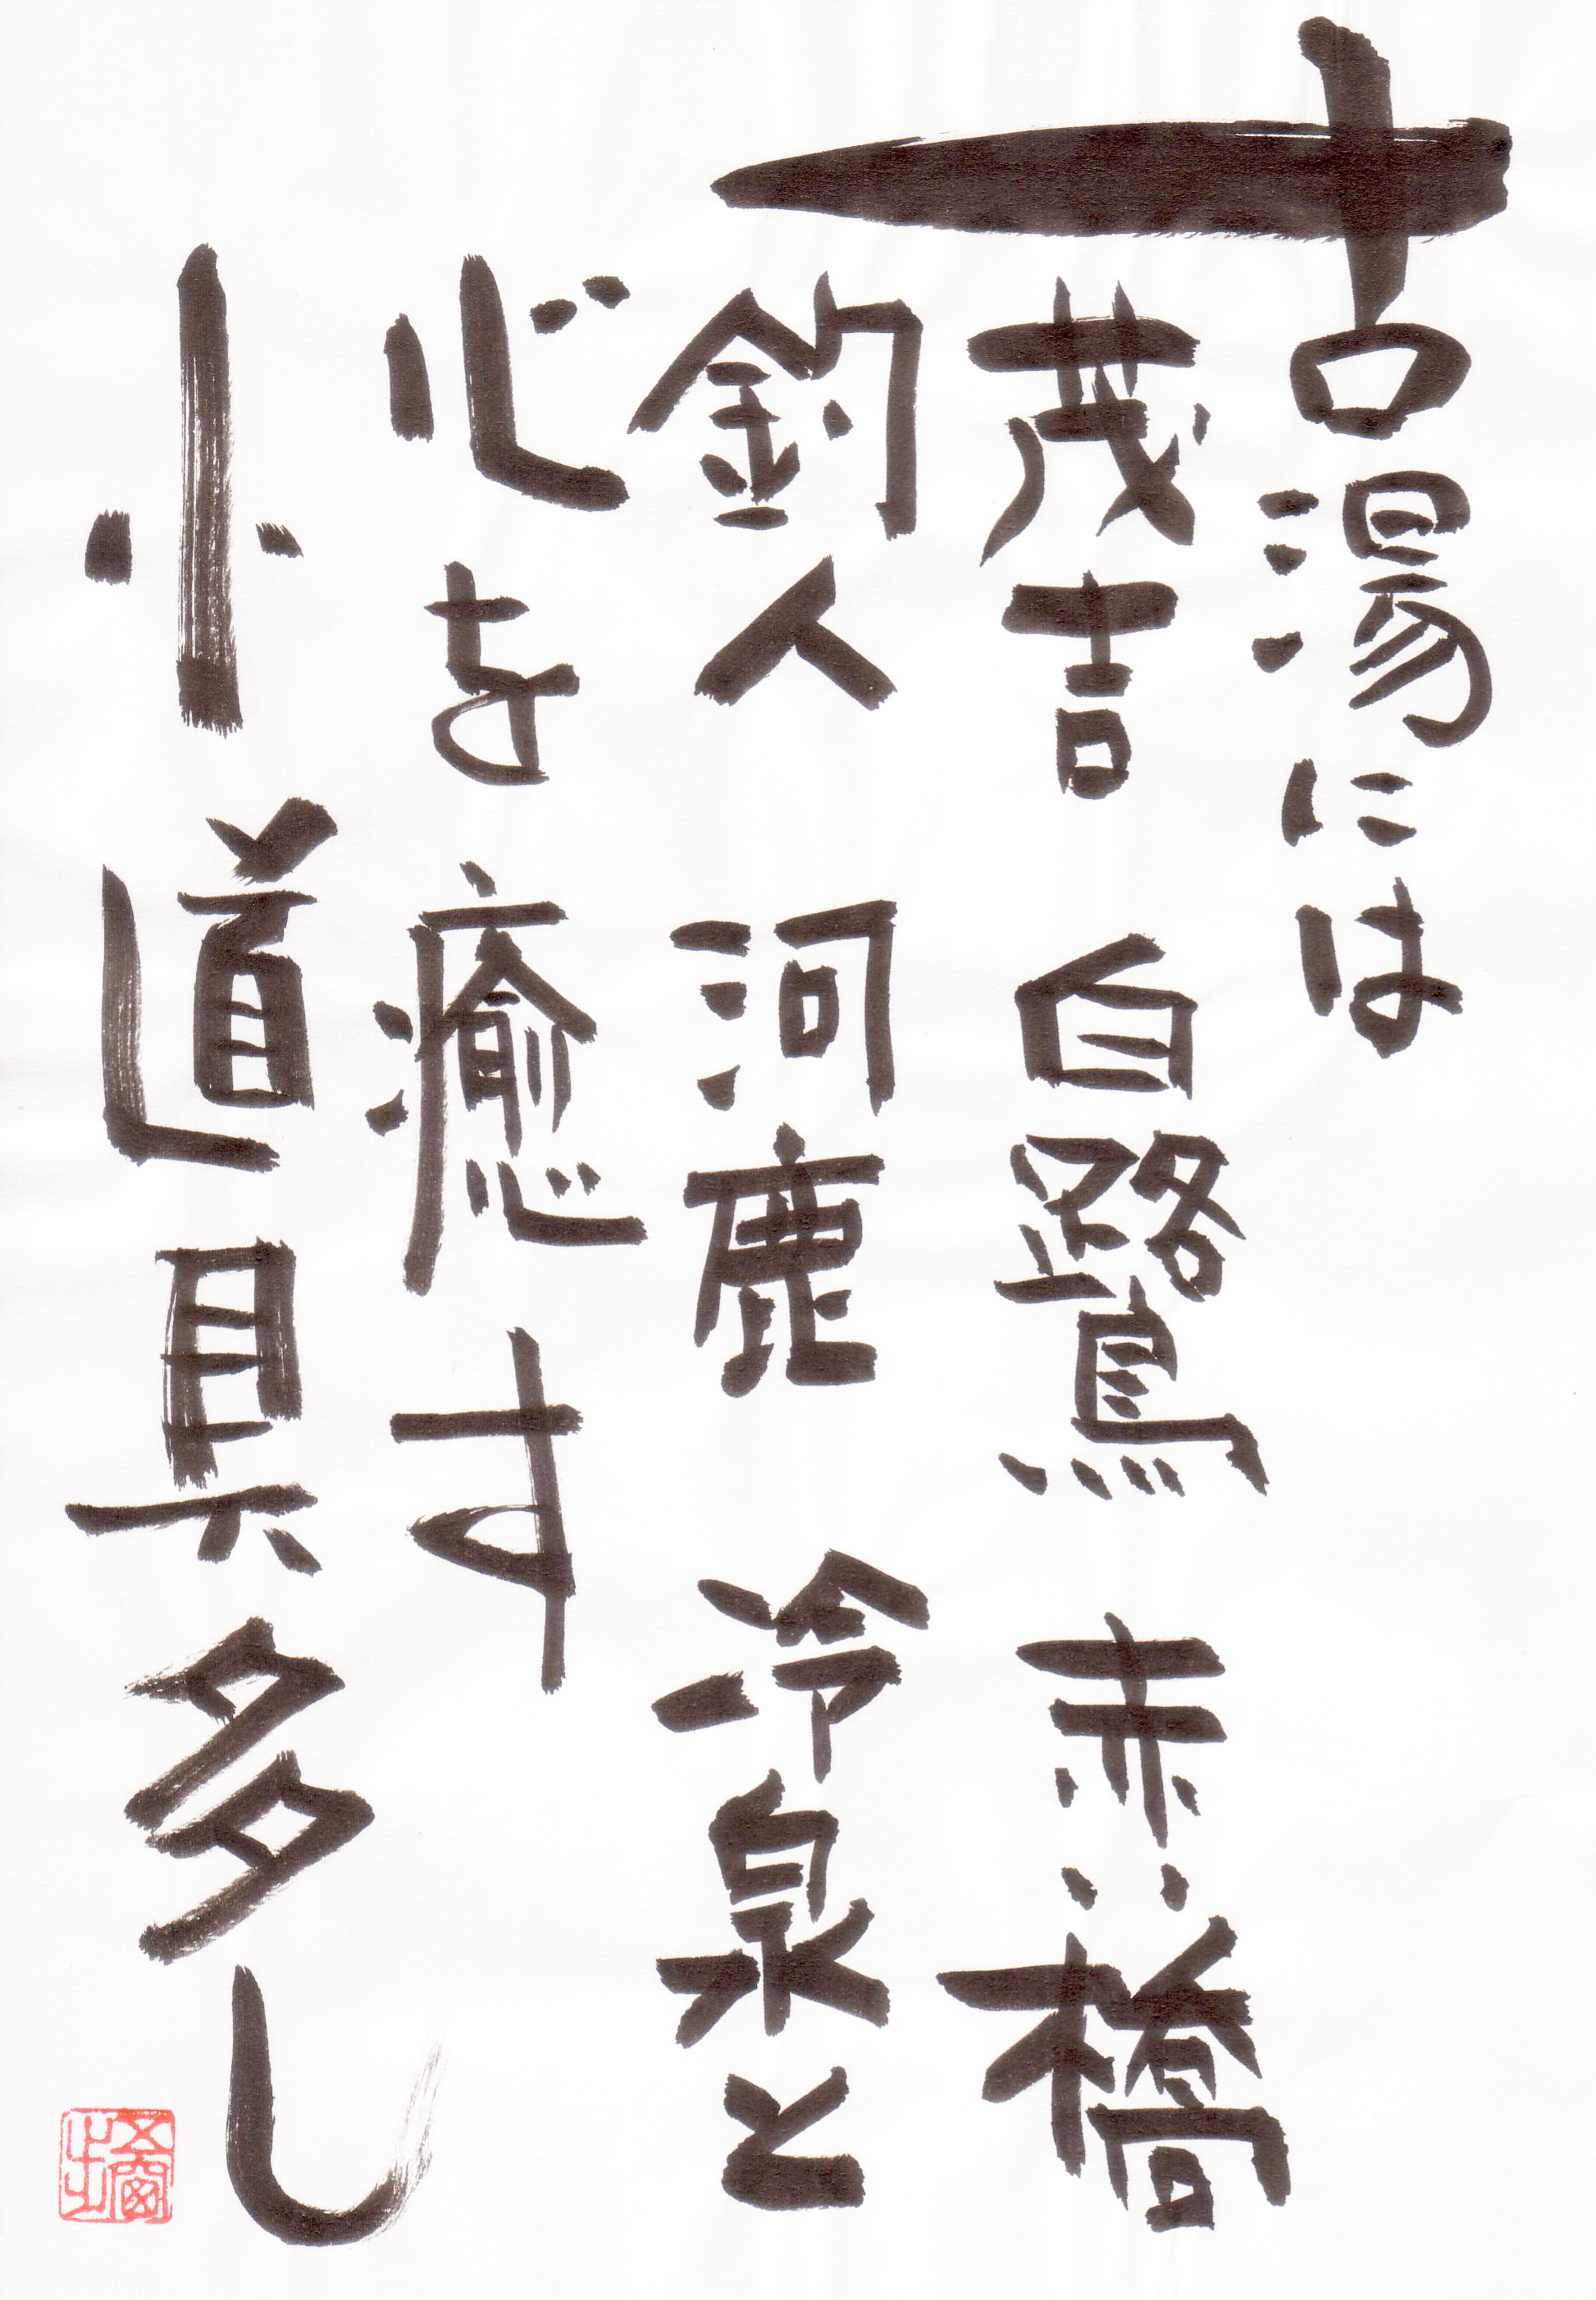 古湯には
茂吉 白鷺 赤い橋
釣人 河鹿 冷泉と
心を癒す
小道具多し